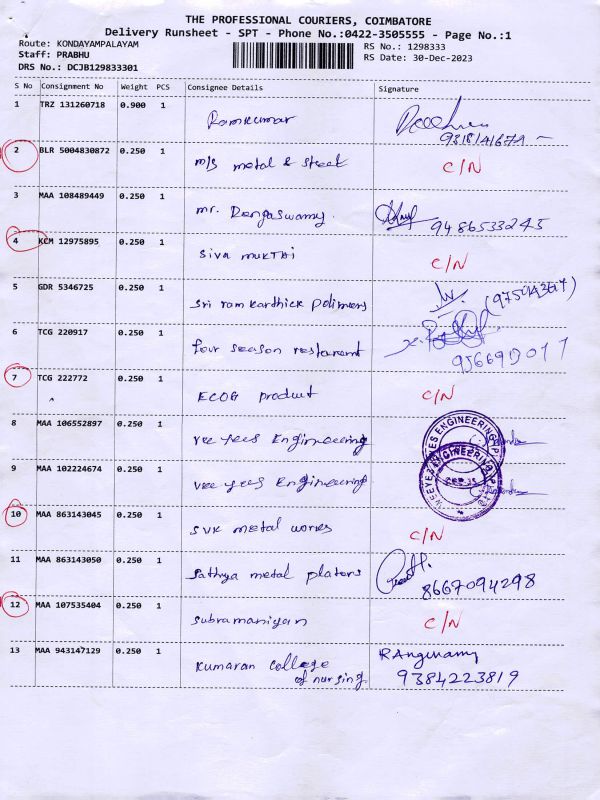 THE PROFESSIONAL COURIERS, COIMBATORE
Delivery Runsheet - SPT - Phone No.:0422-3505555 - Page No.:1
Route: KONDAYAMPALAYAM
RS No.: 1298333
Staff: PRABHU
RS Date: 30-Dec-2023
DRS No.: DCJB129833301
S No Consignment No Weight PCS Consignee Details Signature
1 TRZ 131260718 0.900 1 Ramkumar
2 BLR 5004830872 0.250 1 m/s metal & steel C/N
3 MAA 108489449 0.250 1 mr. Rengaswamy. 9486533245
4 KCM 12975895 0.250 1 siva mukthi C/N
5 GDR 5346725 0.250 1 sri ram karthick polimers
6 TCG 220917 0.250 1 four season restaurant
7 TCG 222772 0.250 1 ECOG product C/N
8 MAA 106552897 0.250 1 vee yees Engineering
9 MAA 102224674 0.250 1 vee yees Engineering
10 MAA 863143045 0.250 1 svk metal works C/N
11 MAA 863143050 0.250 1 sathya metal platers 8667094298
12 MAA 107535404 0.250 1 subramaniyan C/N
13 MAA 943147129 0.250 1 kumaran college RAngasamy
of nursing. 9384223819